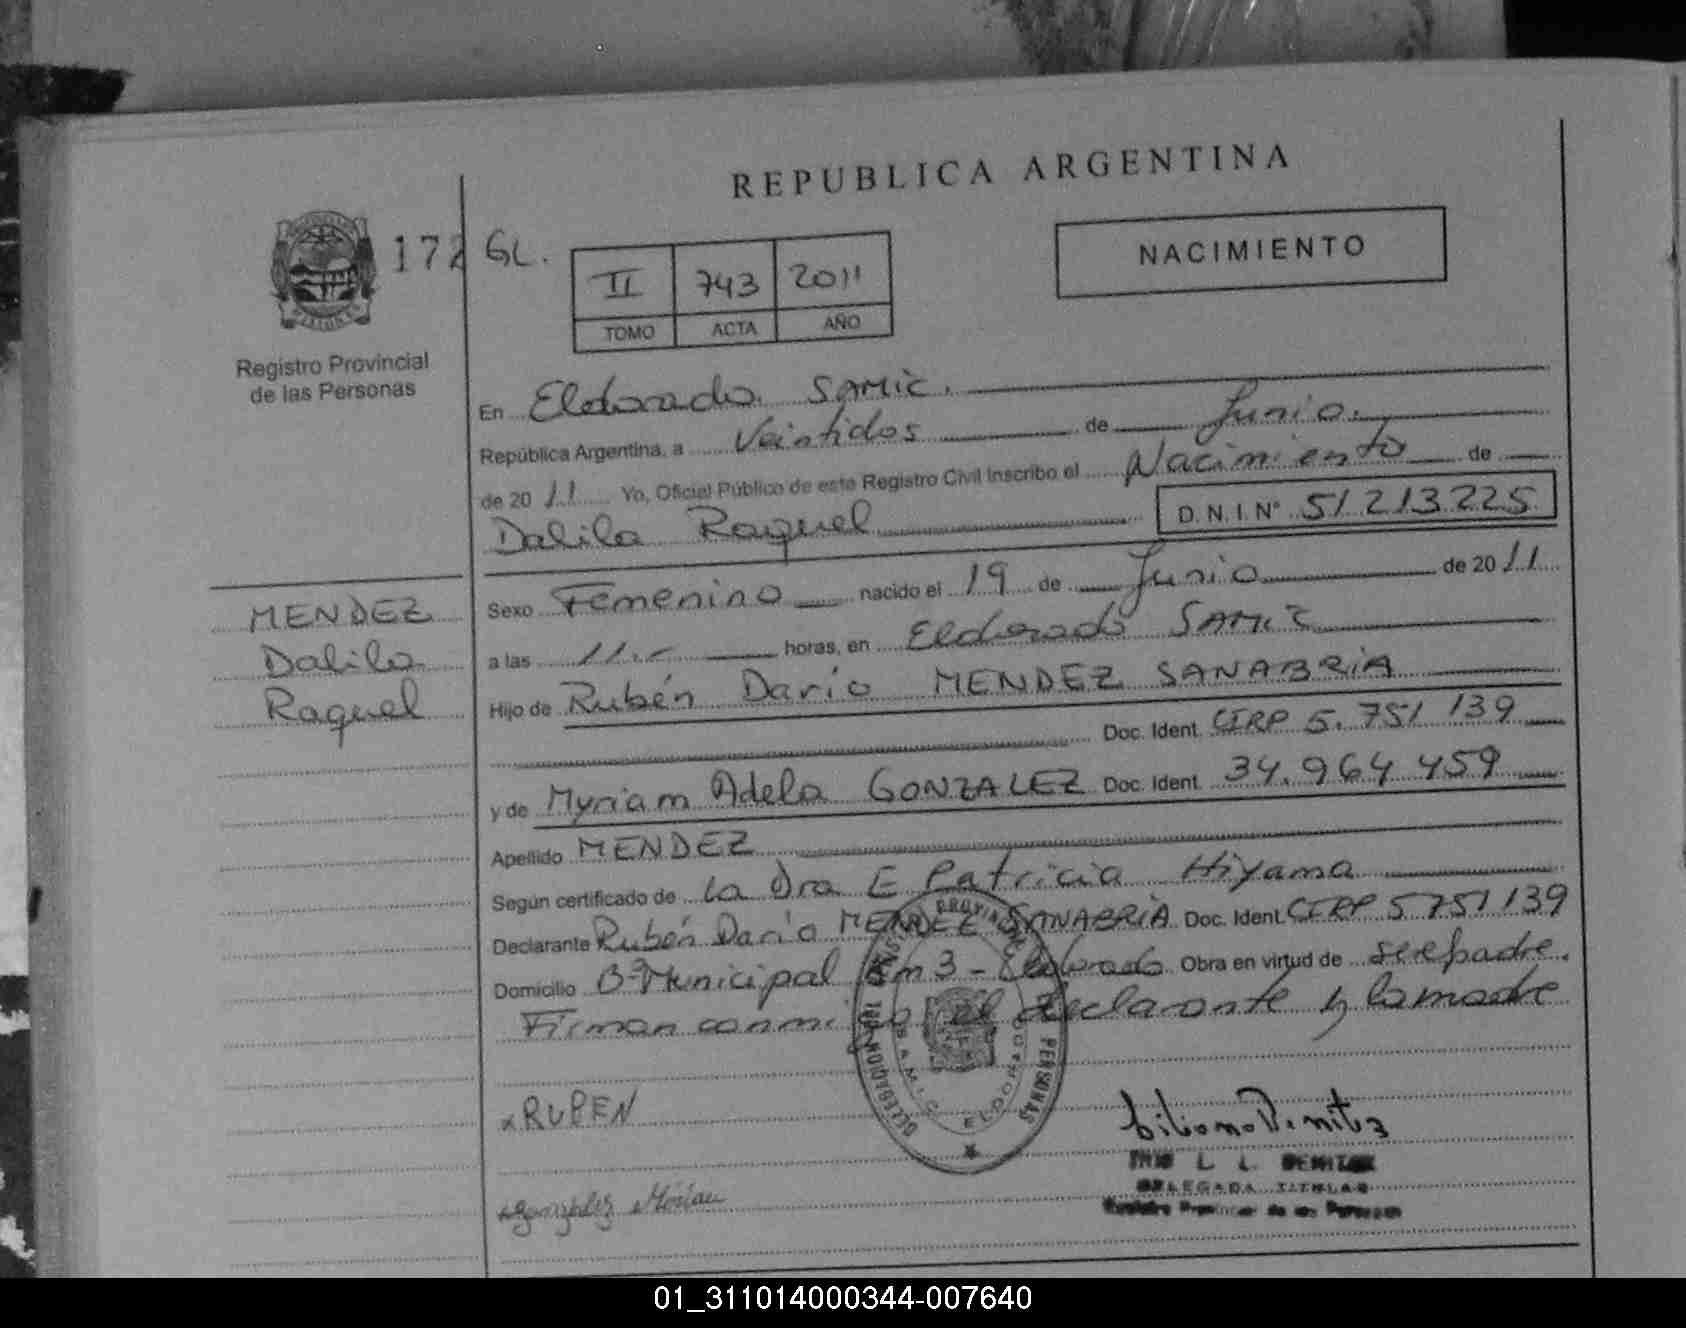 REPUBLICA ARGENTINA
172 GL.
NACIMIENTO
II 743 2011
TOMO ACTA AÑO
Registro Provincial
de las Personas
En Eldorado. SAMIC.
República Argentina, a Veintidos de Junio.
de 20 11 Yo, Oficial Público de este Registro Civil Inscribo el Nacimiento de
Dalila Raquel D.N.I.N° 51213225
MENDEZ
Dalila
Raquel
Sexo Femenino nacido el 19 de Junio de 20 11
a las 11.- horas, en Eldorado SAMIC
Hijo de Rubén Darío MENDEZ SANABRIA
Doc. Ident. CIRP 5.751 139
y de Myriam Adela GONZALEZ Doc. Ident. 34.964 459
Apellido MENDEZ
Según certificado de la Dra E Patricia Hiyama
Declarante Rubén Darío MENDEZ SANABRIA Doc. Ident. CIRP 5751139
Domicilio B° Municipal Km 3 - Eldorado Obra en virtud de ser el padre.
Firman conmigo el declarante y la madre
DELEGACION PROVINCIAL PERSONAS
S.A.M.I.C. ELDORADO
x RUBEN
DELEGADA TITULAR
Registro Provincial de las Personas
01_311014000344-007640